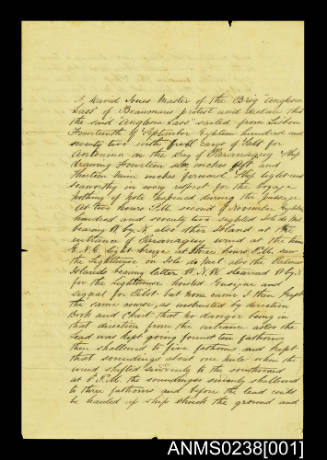 I David Jones Master of the Brig "Anglesea
Lass" of Beaumaris protest and declare that
the said "Anglesea Lass" sailed from Lisbon
Fourteenth of September Eighteen hundred and
seventy two with full cargo of Salt for
Antonina on the Bay of Paranagua Ship
drawing Fourteen six inches aft and
Thirteen nine inches forward Ship tight and
seaworthy in every respect for the Voyage
nothing of Note happened during the passage
At two hours P.M. second of November Eighteen
hundred and seventy two sighted Ilo do Mel
bearing W by N. also other Island at the
entrance of Paranagua wind at the time
E.N.E. light breeze at three hours P.M. saw
the Lighthouse in Ilo do Mel also the Palmas
Islands bearing latter W.N.W. steered W by N
for the lighthouse hoisted Ensign and
signal for Pilot but none came I then kept
the same course as instructed by directions
Book and Chart that no danger being in
that direction from the entrance also the
lead was kept going found ten fathoms
then shallowed to five fathoms and kept
that soundings about one mile when the
wind shifted suddenly to the southward
at 5 P.M. the soundings suddenly shallowed
to three fathoms and before the lead could
be hauled up ship struck the ground and
ANMS0238[001]